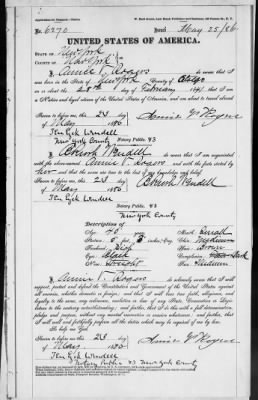 No. 6270 Issued May 25/86
UNITED STATES OF AMERICA.
STATE OF New York
COUNTY OF New York
I, Annie P. Rogers do swear that I
was born in the State of New York County of Otsego
on or about the day of February ; that I am
a Native and loyal citizen of the United States of America, and am about to travel abroad
Sworn to before me, this 24 day
of May 1886
Ten Eyck Wendell
Notary Public 43
New York County
I, Wendell do swear that I am acquainted
with the above-named Annie P. Rogers and with the facts stated by
her and that the same are true to the best of my knowledge and belief.
Sworn to before me, this 24 day
of May 1886
Ten Eyck Wendell
Notary Public 43
New York County
Description of
Age:
Stature: 5 feet inches, Eng.
Forehead:
Eyes:
Nose: Straight
Mouth: Small
Chin: Medium
Hair: Brown
Complexion:
Face: Medium
I, Annie P. Rogers do solemnly swear that I will
support, protect and defend the Constitution and Government of the United States against
all enemies, whether domestic or foreign; and that I will bear true faith, allegiance, and
loyalty to the same, any ordinance, resolution or law of any State, Convention or Legislature
to the contrary notwithstanding; and further, that I do this with a full determination,
pledge and purpose, without any mental reservation or evasion whatsoever; and further,
that I will well and faithfully perform all the duties which may be required of me by law:
So help me God.
Sworn to before me, this 24 day
of May 1886
Ten Eyck Wendell
Notary Public 43 New York County